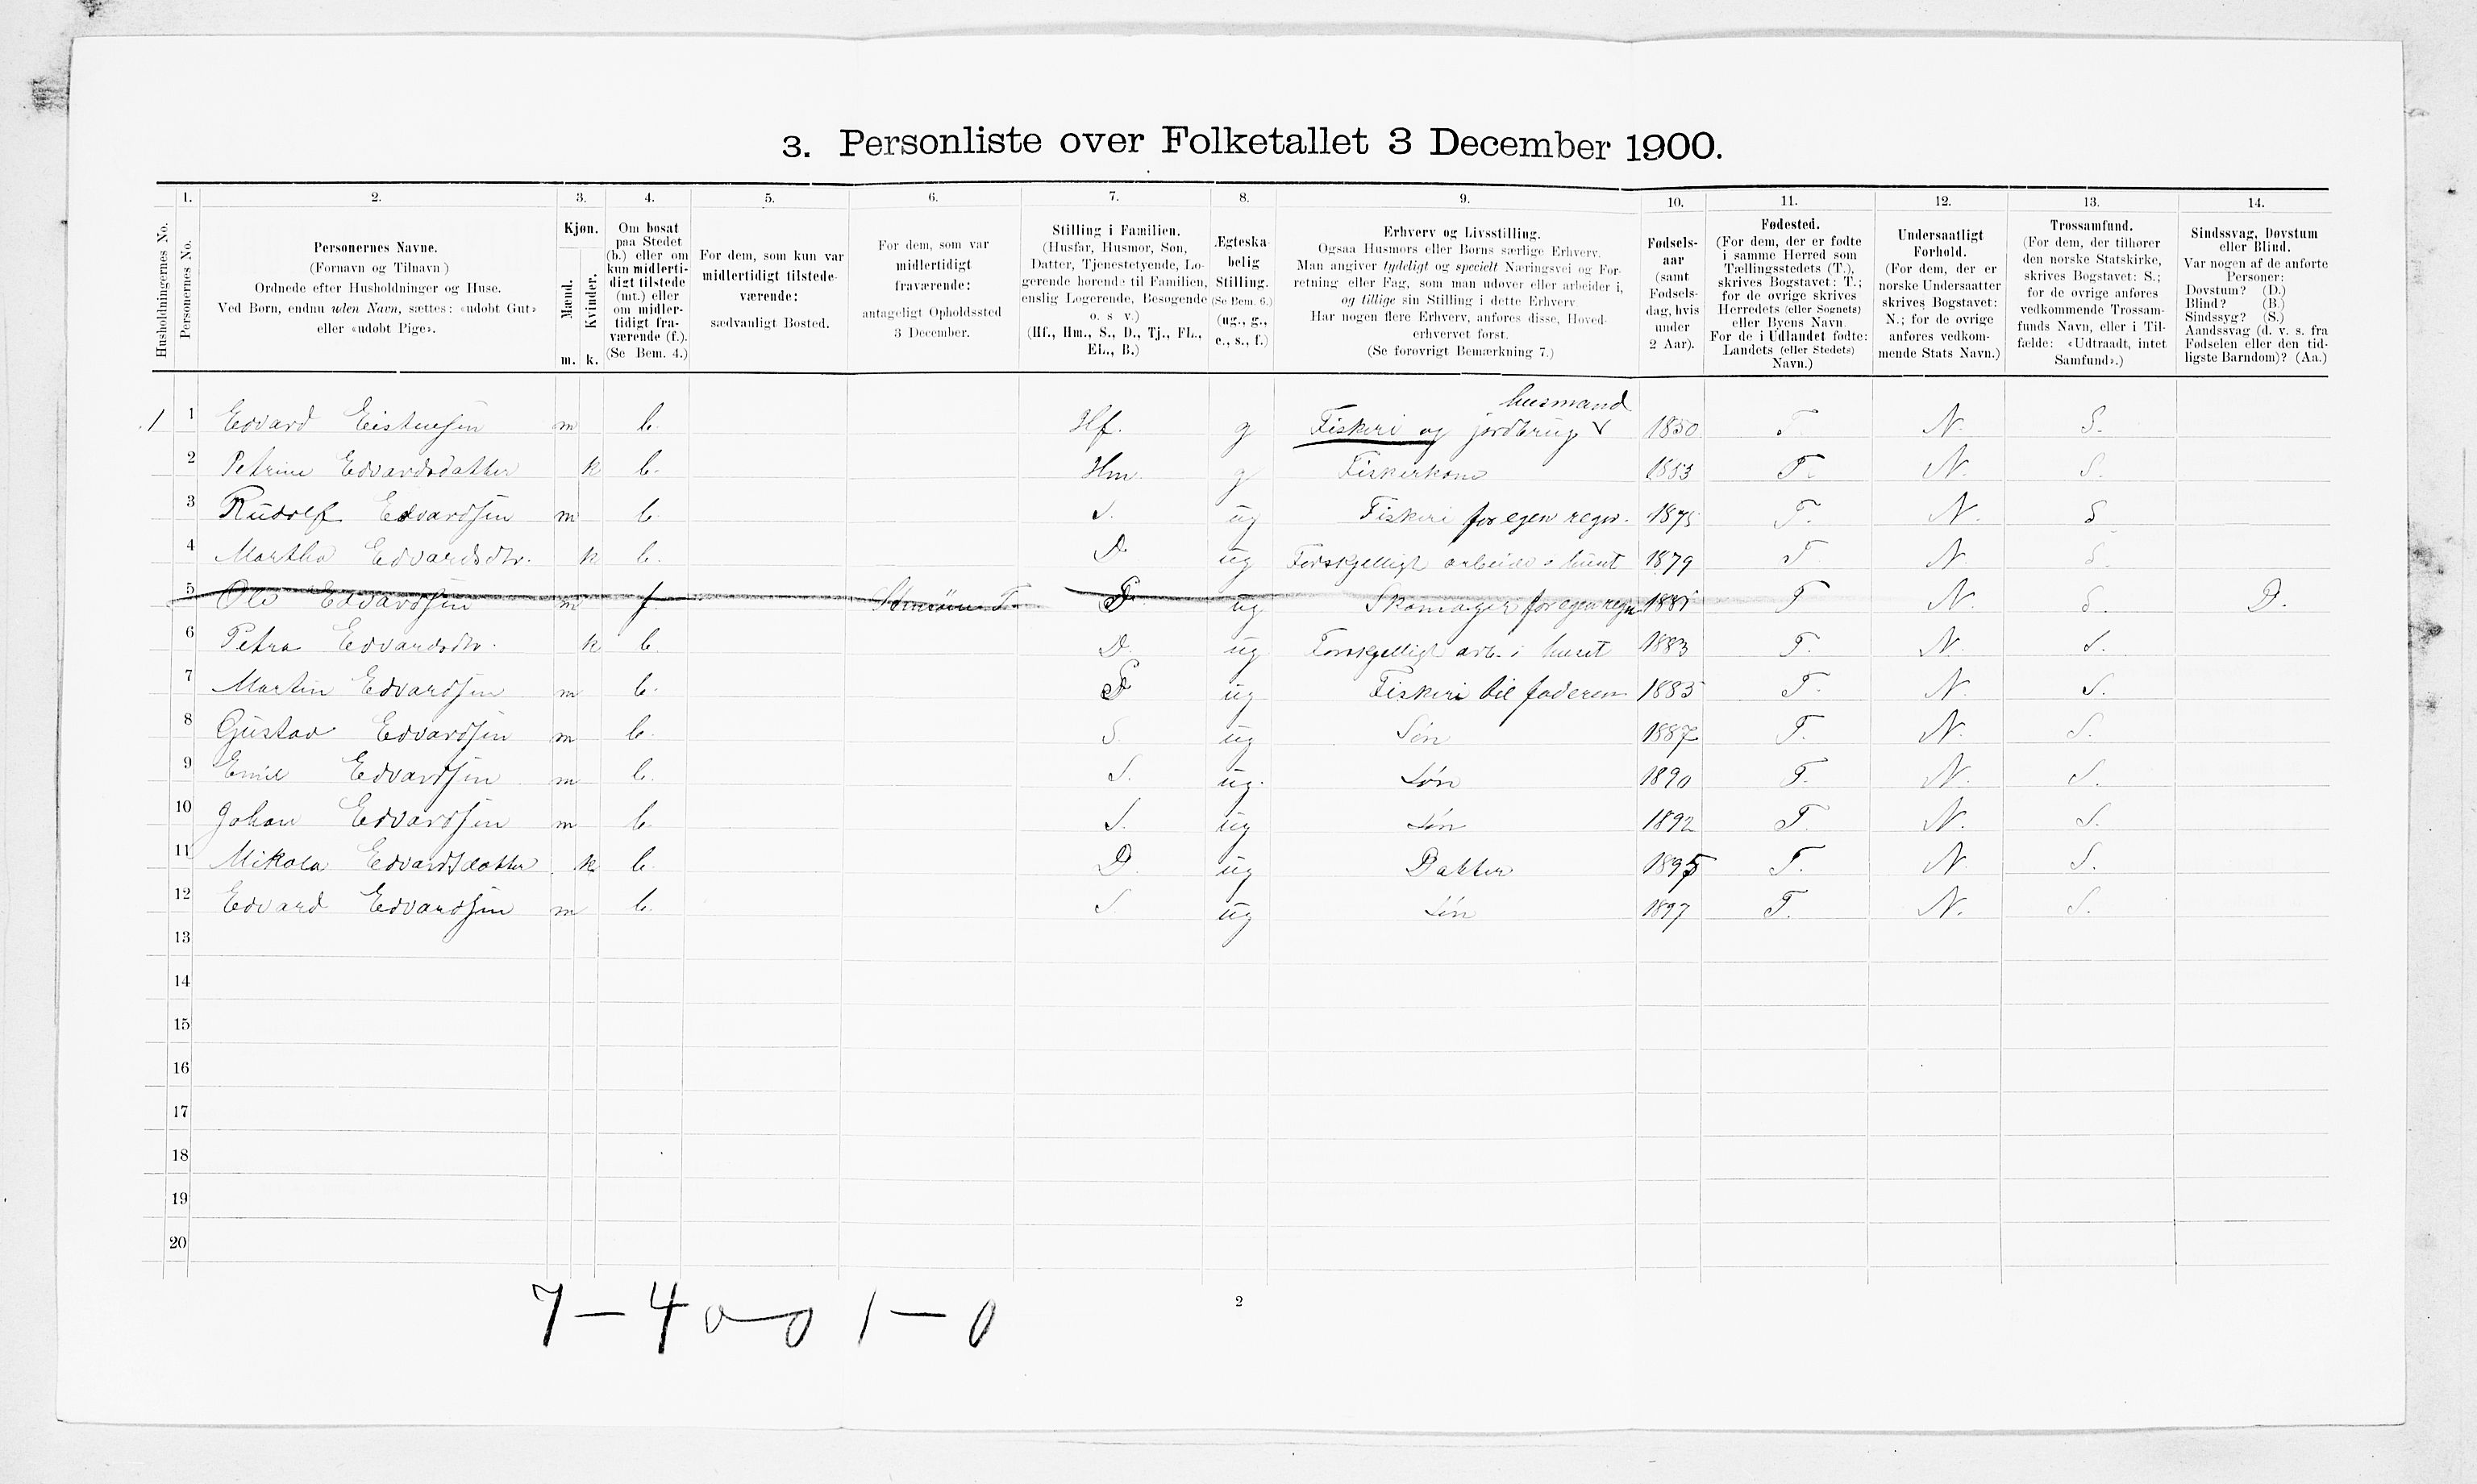 3. Personliste over Folketallet 3 December 1900.
1. 2. 3. 4. 5. 6. 7. 8. 9. 10. 11. 12. 13. 14.
Husholdningernes No.
Personernes No.
Personernes Navne.
(Fornavn og Tilnavn)
Ordnede efter Husholdninger og Huse.
Ved Børn, endnu uden Navn, sættes: «udøbt Gut»
eller «udøbt Pige».
Kjøn.
Mænd.
Kvinder.
m. k.
Om bosat
paa Stedet
(b.) eller om
kun midlerti-
digt tilstede
(mt.) eller
om midler-
tidigt fra-
værende (f.).
(Se Bem. 4.)
For dem, som kun var
midlertidigt tilstede-
værende:
sædvanligt Bosted.
For dem, som var
midlertidigt
fraværende:
antageligt Opholdssted
3 December.
Stilling i Familien.
(Husfar, Husmor, Søn,
Datter, Tjenestetyende, Lo-
gerende hørende til Familien,
enslig Logerende, Besøgende
o. s. v.)
(Hf., Hm., S., D., Tj., FL.,
EL., B.)
Ægteska-
belig
Stilling.
(Se Bem. 6.)
(ug., g.,
e., s., f.)
Erhverv og Livsstilling.
Ogsaa Husmors eller Børns særlige Erhverv.
Man angiver tydeligt og specielt Næringsvei og For-
retning eller Fag, som man udøver eller arbeider i,
og tillige sin Stilling i dette Erhverv.
Har nogen flere Erhverv, anføres disse, Hoved-
erhvervet først.
(Se forøvrigt Bemærkning 7.)
Fødsels-
aar
(samt
Fødsels-
dag, hvis
under
2 Aar).
Fødested.
(For dem, der er fødte
i samme Herred som
Tællingsstedets (T.),
skrives Bogstavet: T.;
for de øvrige skrives
Herredets (eller Sognets)
eller Byens Navn.
For de i Udlandet fødte:
Landets (eller Stedets)
Navn.)
Undersaatligt
Forhold.
(For dem, der er
norske Undersaatter
skrives Bogstavet:
N.; for de øvrige
anføres vedkom-
mende Stats Navn.)
Trossamfund.
(For dem, der tilhører
den norske Statskirke,
skrives Bogstavet: S.;
for de øvrige anføres
vedkommende Trossam-
funds Navn, eller i Til-
fælde: «Udtraadt, intet
Samfund».)
Sindssvag, Døvstum
eller Blind.
Var nogen af de anførte
Personer:
Døvstum? (D.)
Blind? (B.)
Sindssyg? (S.)
Aandssvag (d. v. s. fra
Fødselen eller den tid-
ligste Barndom)? (Aa.)
husmand
1 1 Edvard Eistensen m b. Hf. g Fiskeri og jordbrug v 1850 T. N. S.
2 Petrine Edvardsdatter k b. Hm. g Fiskerkone 1853 T. N. S.
3 Rudolf Edvardsen m b. S. ug Fiskeri for egen regn. 1875 T. N. S
4 Martha Edvardsdtr. k b. D ug Forskjelligt arbeide i huset 1879 T N. S.
5 Ole Edvardsen m f T. ug Skomager for egen regn 1881 T N. S. D.
6 Petra Edvardsdtr. k b. D. ug Forskjelligt arb. i huset 1883 T. N. S.
7 Martin Edvardsen m b. S ug Fiskeri til faderen 1885 T. N. S.
8 Gustav Edvardsen m b. S. ug Søn 1887 T. N. S.
9 Emil Edvardsen m b. S. ug. Søn 1890 T. N. S.
10 Johan Edvardsen m b. S. ug Søn 1892 T. N. S.
11 Mikola Edvardsdatter k b. D. ug Datter 1895 T. N. S.
12 Edvard Edvardsen m b. S. ug Søn 1897 T. N. S.
13
14
15
16
17
18
19
20
7 – 4 0 – 0 1 – 0
2